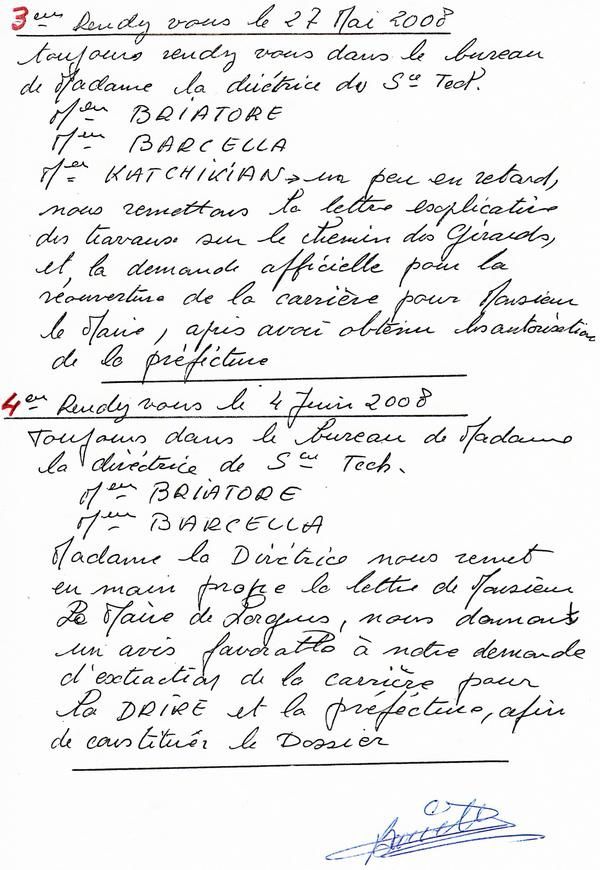 3em Rendez vous le 27 Mai 2008
toujours rendez vous dans le bureau
de Madame la diréctrice du Sce Tech.
Mer BRIATORE
Mer BARCELLA
Mer KATCHIKIAN → un peu en retard,
nous remettons la lettre esplicative
des travaux sur le chemin des Girards,
et, la demande officielle pour la
réouverture de la carrière pour Monsieur
le Maire, aprés avoir obtenu les autorisation
de la préfécture
4em Rendez vous le 4 Juin 2008
Toujours dans le bureau de Madame
la diréctrice de Sce Tech.
Mer BRIATORE
Mer BARCELLA
Madame la Diréctrice nous remet
en main propre la lettre de Monsieur
Le Maire de Lorgues, nous donnant
un avis favorable à notre demande
d'extraction de la carrière pour
la DRIRE et la préfécture, afin
de constituér le Dossier